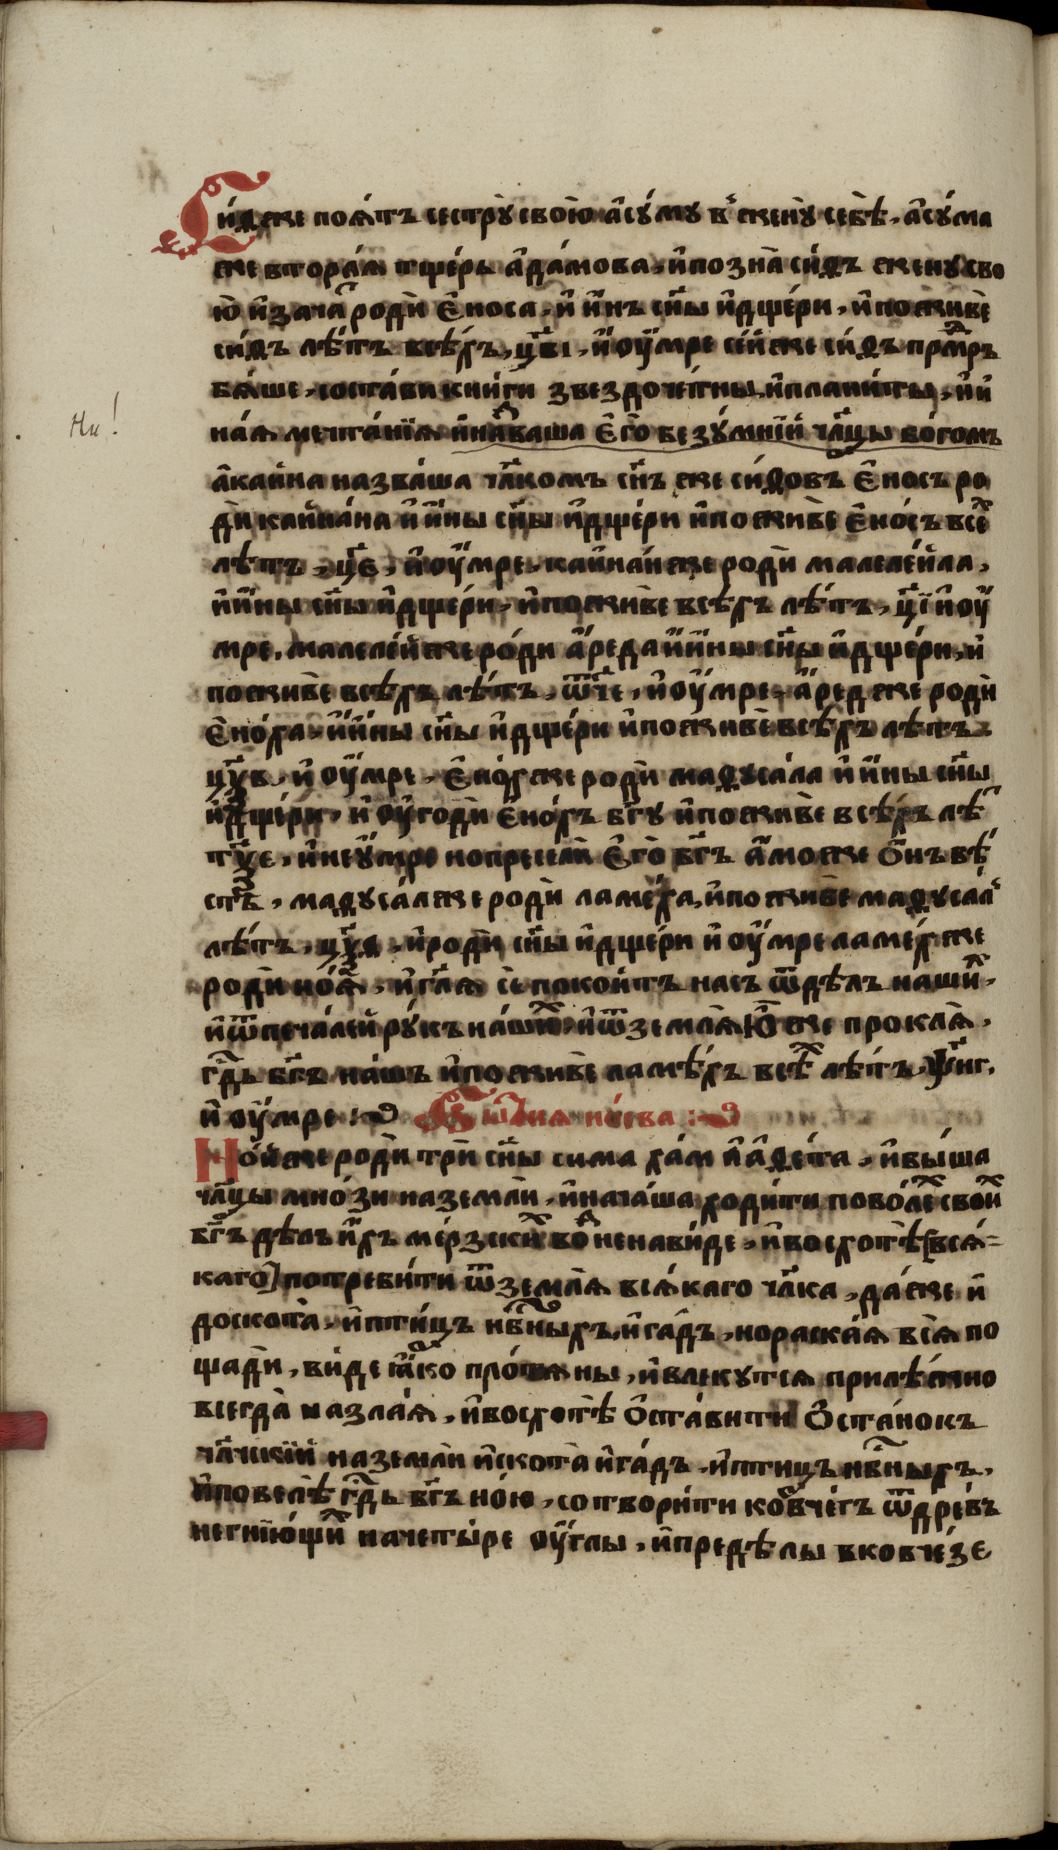 Сиѳ же поѧ́тъ сестрꙋ̀ свою̀ а҆сꙋ́мꙋ в женꙋ̀ себѣ̀, а҆сꙋ́ма
же втораѧ тщерь а҆да́мова, и҆позна̀ си́ѳъ женꙋ сво
ю̀ и҆зача́ родѝ е҆́носа, и҆ и҆́нъ сн҃ы и҆дще́ри, и҆поживѐ
си́ѳъ лѣ́тъ всѣ́хъ, ц҃в҃і, и҆оу҆́мре се́й же си́ѳъ прмⷣръ
бѧ́ше, соста́ви кни́ги звездоче́тны, и҆плани́ты, и҆и
наѧ мечта́нїѧ и҆нⷣаваша е҆го̀ безꙋ́мнїи чл҃цы бо́гомъ
а҆каи́на назва́ша чл҃комъ сн҃ъ же си́ѳовъ е҆́носъ ро
дѝ каина́на и҆ и҆́ны сн҃ы и҆дще́ри и҆поживѐ е҆но́съ всеⷯ
лѣтъ, ц҃е, и҆оу҆́мре, каина́н же родѝ малеле́ила,
и҆и҆́ны сн҃ы и҆дще́ри, и҆поживѐ всѣ́хъ лѣ́тъ, ц҃і и҆оу҆́
мре, малеле́й же ро́ди а҆́реда и҆и҆́ны сн҃ы и҆дще́ри, и҆
поживѐ всѣ́хъ лѣ́тъ, ѿ҃че, и҆оу҆́мре, а҆́ред же родѝ
е҆но́ха, и҆и҆́ны сн҃ы и҆дще́ри и҆поживѐ всѣ́хъ лѣтъ
ц҃ѯв, и҆ оу҆́мре, е҆но́х же родѝ маѳꙋса́ла и҆ и҆́ны сн҃ы
и҆дще́ри, и҆ оу҆годѝ е҆но́хъ бг҃ꙋ и҆поживѐ всѣ́хъ лѣ
т҃ѯе, и҆неꙋ҆́мре нопреселѝ е҆го̀ бг҃ъ а҆́може о҆́нъ вѣ́
стъ, маѳꙋса́л же родѝ ламе́ха, и҆поживѐ маѳꙋсал
лѣ́тъ, ц҃ѯѳ, и҆родѝ сн҃ы и҆дще́ри и҆ оу҆́мре ламе́х же
родѝ но́ѧ, и҆гл҃ѧ се́ покои́тъ насъ ѿдѣлъ нашиⷯ,
и҆ѿпеча́лей рꙋ́къ на́шиⷯ, и҆ѿземлѧ̀ ю҆́ же проклѧ̀,
гдⷭ҇ь бг҃ъ нашъ и҆поживѐ ламѣ́хъ всеⷯ лѣ́тъ, ѱ҃нг,
и҆ оу҆́мре :
Ѡ҆ но́ева :
Но́й же родѝ трѝ сн҃ы сима ха́м а҆ а҆ѳе́та, и҆бы́ша
чл҃цы мно́зи наземлѝ, и҆нача́ша ходи́ти пово́леⷯ своиⷯ
бг҃ъ дѣлъ и҆́хъ ме́рзскиⷯ воⷥненави́де, и҆восхотѣ̀ [всѧ-
каго] потреби́ти ѿземлѧ̀ всѧ́каго чл҃ка, да́же и҆
доскота̀, и҆пти́цъ нбⷭ҇ныхъ, и҆га́дъ, нораска́ѧ всѧ̀ по
щадѝ, ви́де ꙗ҆́ко пло́тѧны, и҆влекꙋтсѧ прилѣ́жно
всегда̀ назла́ѧ, и҆восхотѣ̀ о҆ста́вити о҆ста́нокъ
чл҃чкїй наземлѝ и҆скота̀ и҆га́дъ, и҆птицъ нбⷭ҇ныхъ,
и҆повелѣ̀ гдⷭ҇ь бг҃ъ но́ю, сотвори́ти ковче́гъ ѿдре́въ
негнїю́щиⷯ начеты́ре оу҆́глы, и҆преде́лы вковче́зе
Ни!